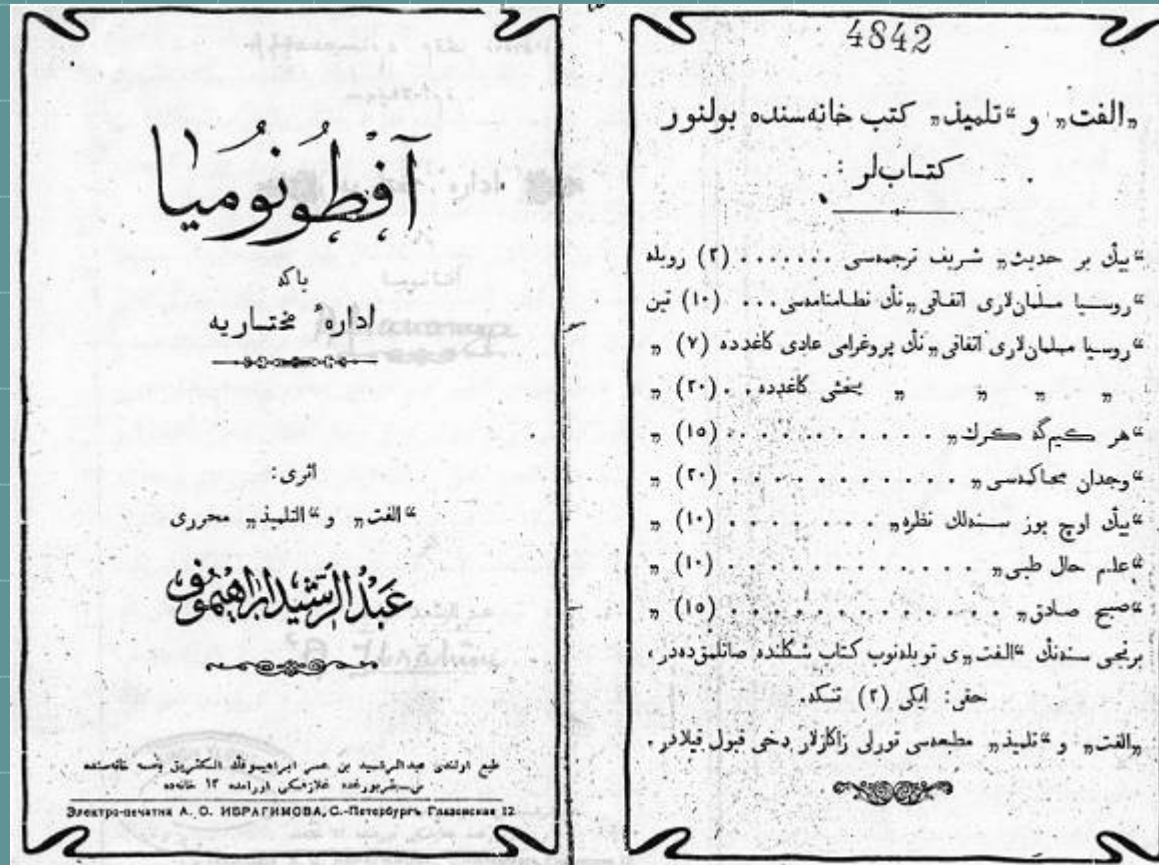 آفطونوميا
ياكه
ادارهٔ مختاريه
اثرى:
“الفت„ و “التلميذ„ محررى
عبد الرشيد ابراهيموف
طبع اولندى عبدالرشيد بن عمر ابراهيموفنڭ الكتريق بصمه خانه‌سنده
س‌پيتربورغده غلازفسكى اورامده ١٢ خانه‌ده
Электро-печатня А. О. ИБРАГИМОВА, С.-Петербургъ Глазовская 12
4842
„الفت„ و “تلميذ„ كتب خانه‌سنده بولنور
كتاب‌لر:
“بيڭ بر حديث„ شريف ترجمه‌سى ....... (٢) روبله
“روسيا مسلمان‌لارى اتفاقى„نڭ نظامنامه‌سى ... (١٠) تين
“روسيا مسلمان‌لارى اتفاقى„نڭ پروغرامى عادى كاغدده (٧) „
„ „ „ „ يخشى كاغدده .. (٢٠) „
“هر كيم‌گه كرك„ .......... (١٥) „
“وجدان محاكمه‌سى„ ........... (٢٠) „
“بيڭ اوچ يوز سنه‌لك نظره„ ........ (١٠) „
“علم حال طبى„ ............ (١٠) „
“صبح صادق„ .............. (١٥) „
برنجى سنه‌نڭ “الفت„ى توبله‌نوب كتاب شكلنده صاتلمق‌ده‌در،
حقى: ايكى (٢) تنكه.
„الفت„ و “تلميذ„ مطبعه‌سى تورلى زاكازلار دخى قبول قيلادر.